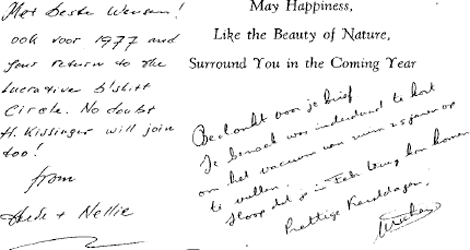 Met beste Wensen!
ook voor 1977 and
your return to the
lucrative b'shit
Circle. No doubt
H. Kissinger will join
too!
from
+ Nellie
May Happiness,
Like the Beauty of Nature,
Surround You in the Coming Year
Bedankt voor je brief
Je bezoek was inderdaad te kort
om het vacuum van ruim 25 jaren op
te vullen.
Hoop dat je in Feb. terug kan komen
Prettige Kerstdagen,